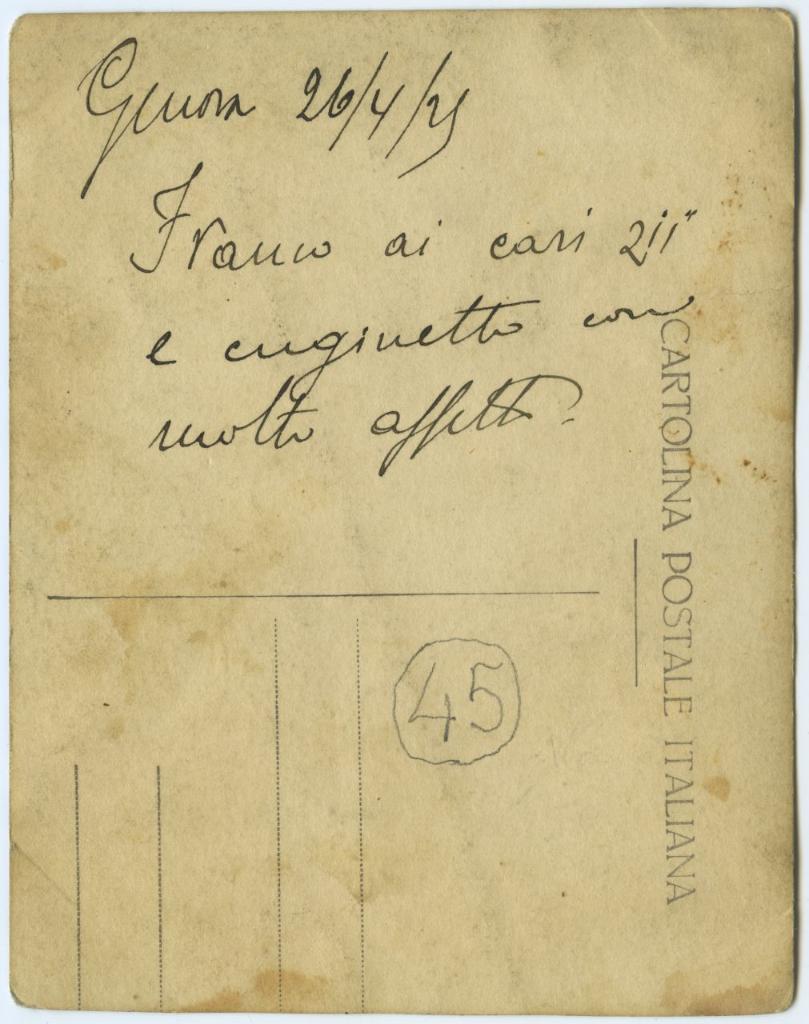 Genova 26/4/25
Franco ai cari zii
e cuginetto con
molto affetto.
CARTOLINA POSTALE ITALIANA
45